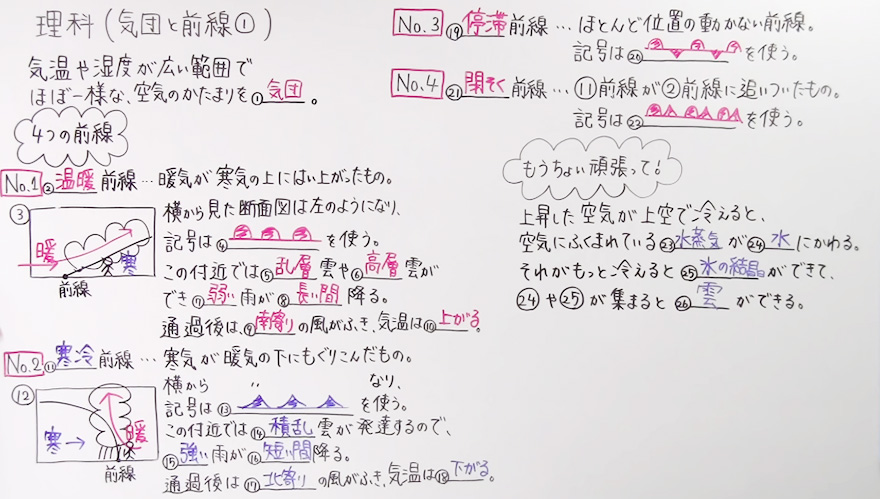 理科(気団と前線①)
気温や湿度が広い範囲で
ほぼ一様な、空気のかたまりを①気団。
4つの前線
No.1 ②温暖前線…暖気が寒気の上にはい上がったもの。
③
暖
寒
前線
横から見た断面図は左のようになり、
記号は④を使う。
この付近では⑤乱層雲や⑥高層雲が
でき⑦弱い雨が⑧長い間降る。
通過後は、⑨南寄りの風がふき、気温は⑩上がる。
No.2 ⑪寒冷前線…寒気が暖気の下にもぐりこんだもの。
⑫
寒→
暖
前線
横から 〃 なり、
記号は⑬を使う。
この付近では⑭積乱雲が発達するので、
⑮強い雨が⑯短い間降る。
通過後は⑰北寄りの風がふき、気温は⑱下がる。
No.3 ⑲停滞前線…ほとんど位置の動かない前線。
記号は⑳を使う。
No.4 ㉑閉そく前線…⑪前線が②前線に追いついたもの。
記号は㉒を使う。
もうちょい頑張って!
上昇した空気が上空で冷えると、
空気にふくまれている㉓水蒸気が㉔水にかわる。
それがもっと冷えると㉕氷の結晶ができて、
㉔や㉕が集まると㉖雲ができる。